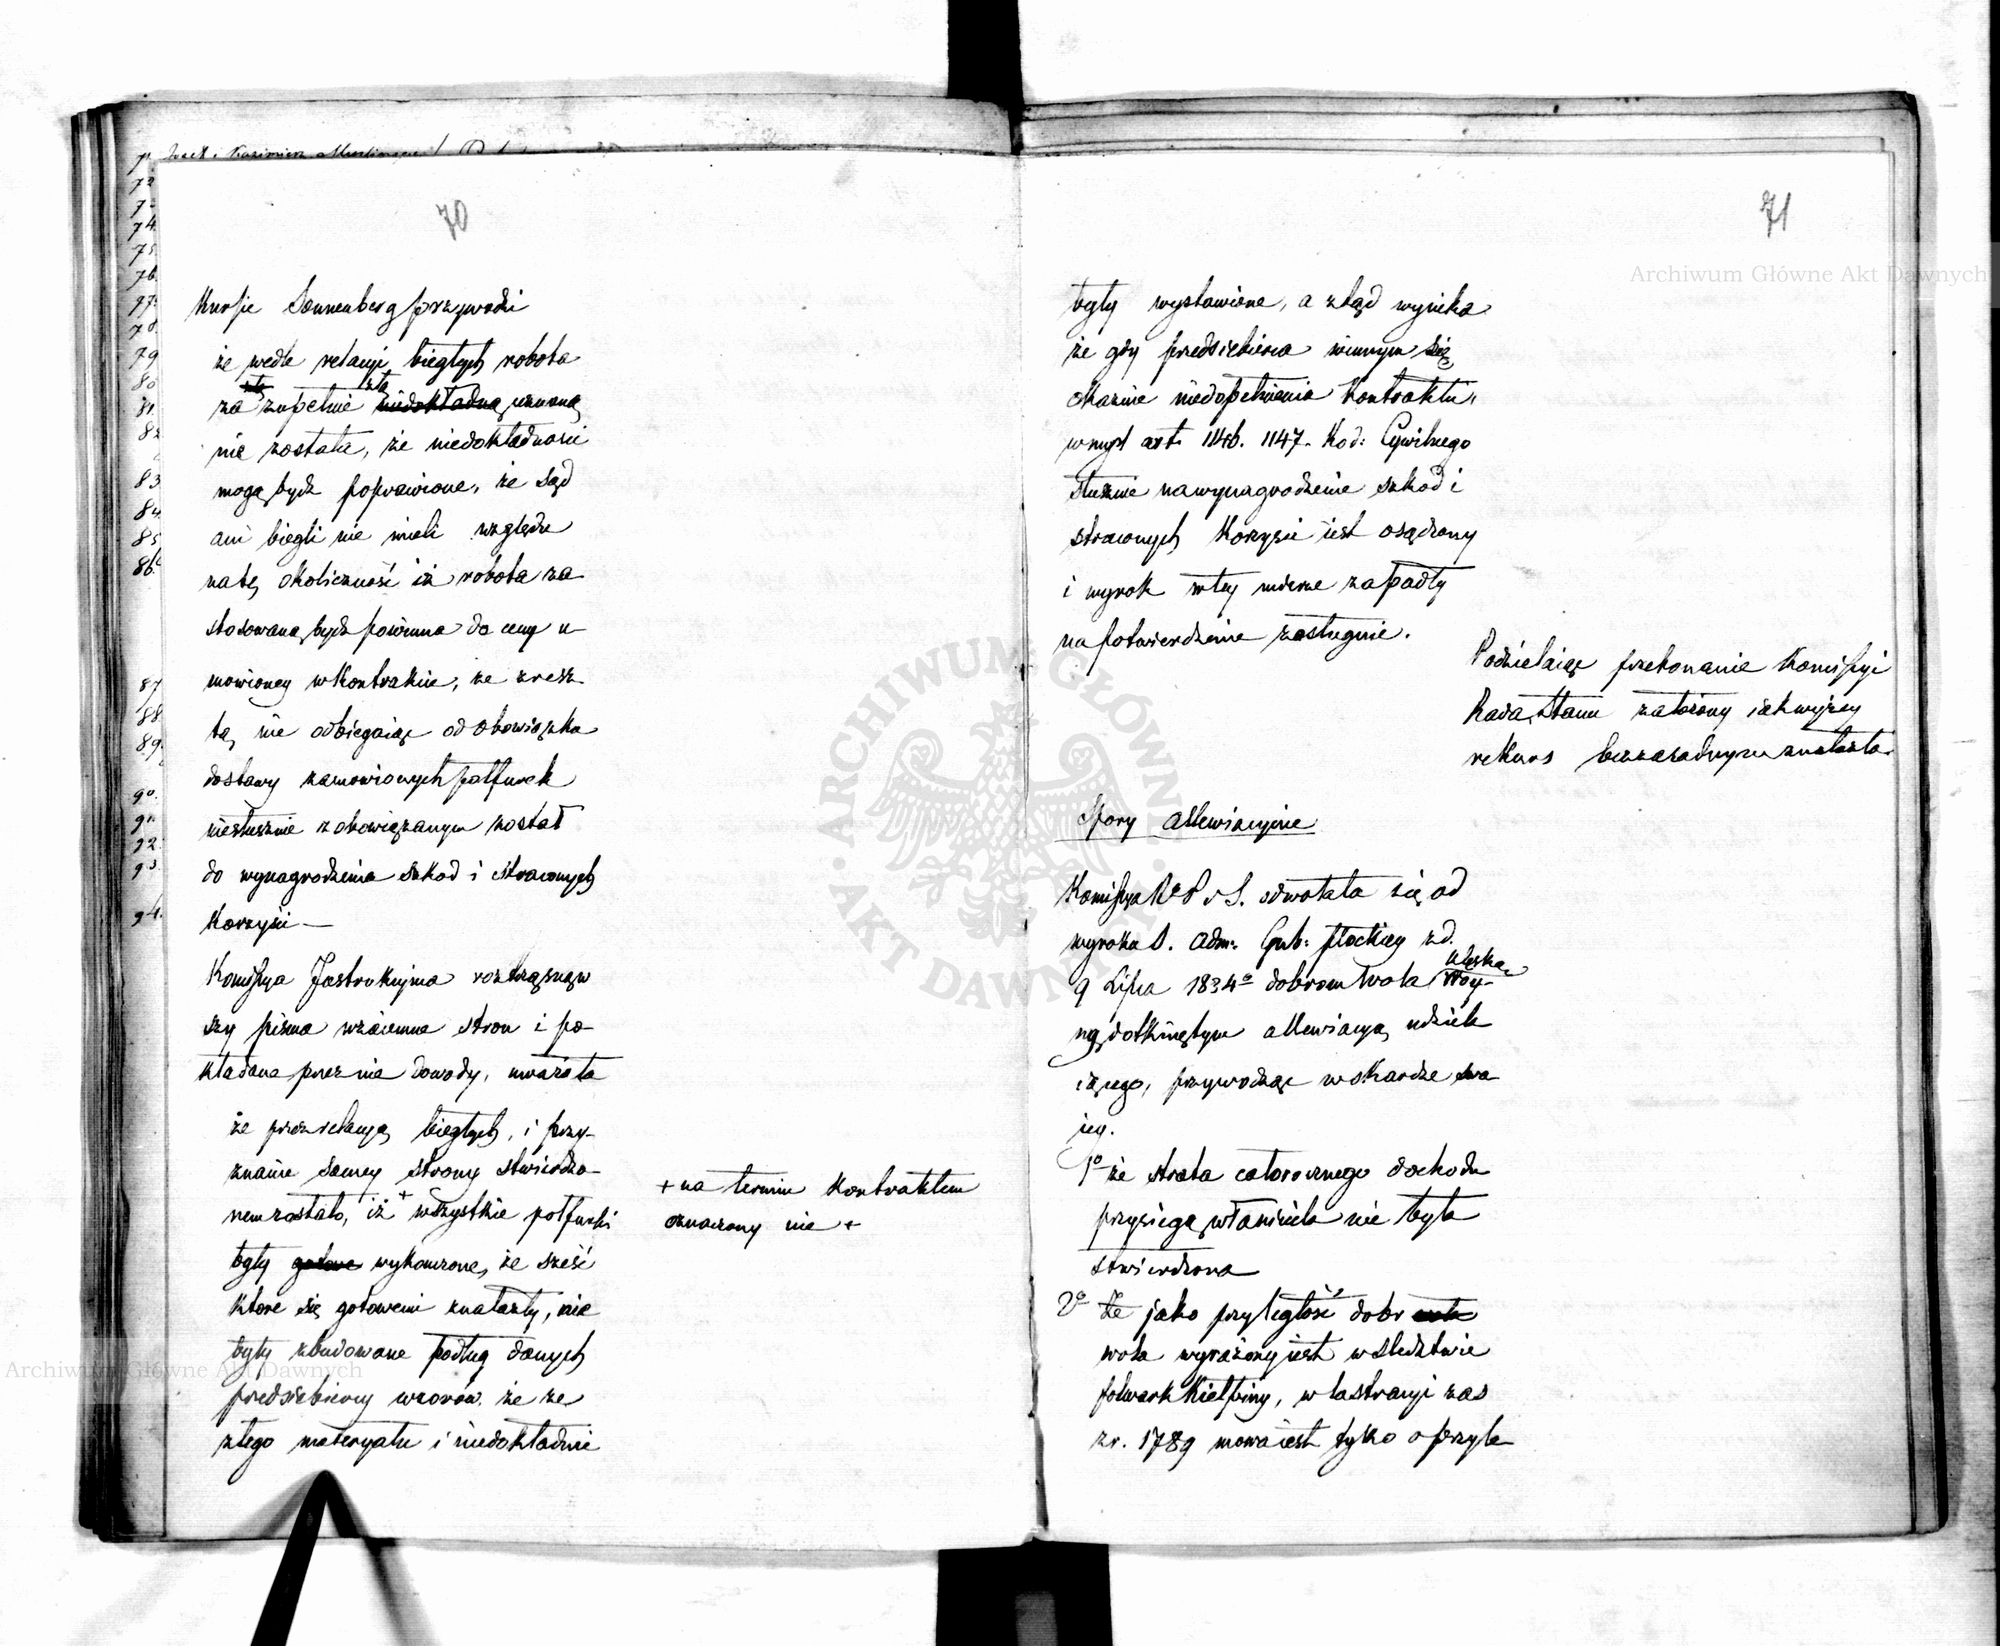 70
Kursie Sonnenberg przywodzi
że wedle relacyi biegłych robota
za zupełnie złą uznaną
nie została, że niedokładności
mogą bydź poprawione, że Sąd
ani biegli nie mieli względu
na tę okoliczność iż robota za
stosowaną bydź powinna do ceny u
mowioney w Kontrakcie, że zresz
tą nie odbiegaiąc od obowiązku
dostawy zamowionych połfurek
niesłusznie zobowiązanym został
do wynagrodzenia szkod i straconych
Korzyści —
Komissya Instrukcyina roztrząsnąw
szy pisma wzaiemne stron i po-
kładane przez nie dowody, uważała
że przez relacyą biegłych, i przy-
znanie samey strony stwierdzo-
nem zostało, iż + wszystkie połfurki
były gotowe wykonczone, że sześć
które się gotowemi znalazły, nie
były zbudowane podług danych
przedsiębiercy wzorów, że ze
złego materyału i niedokładnie
+ na termin Kontraktem
oznaczony nie +
71
były wystawione, a ztąd wynika
że gdy przedsiebierca winnym się
okazuie niedopełnienia Kontraktu,
w mysl art. 1146. 1147. Kod: Cywilnego
słusznie na wynagrodzenie szkod i
straconych Korzyści iest osądzony
i wyrok w tey mierze zapadły
na potwierdzenie zasługuie.
Podzielaiąc przekonanie Komissyi
Rada Stanu założony iak wyżey
rekurs bezzasadnym znalazła.
Spory allewiacyine
Komissya R. P. i S. odwołała się od
wyroku S. Adm: Gub: Płockiey z d.
9 Lipca 1834 dobrom Wola klęską
Woy-
ną dotkniętym allewiacyą udziela
iącego, przywodząc w skardze swo
iey.
1o że strata całorocznego dochodu
przysięgą właściciela nie była
stwierdzona
2o Że jako przyległość dobr
wola wyrażony iest w śledztwie
folwark Kiełpiny, w lustracyi zas
z r. 1789 mowa iest tylko o przyle
Archiwum Główne Akt Dawnych
Archiwum Główne Akt Dawnych
ARCHIWUM GŁÓWNE AKT DAWNYCH